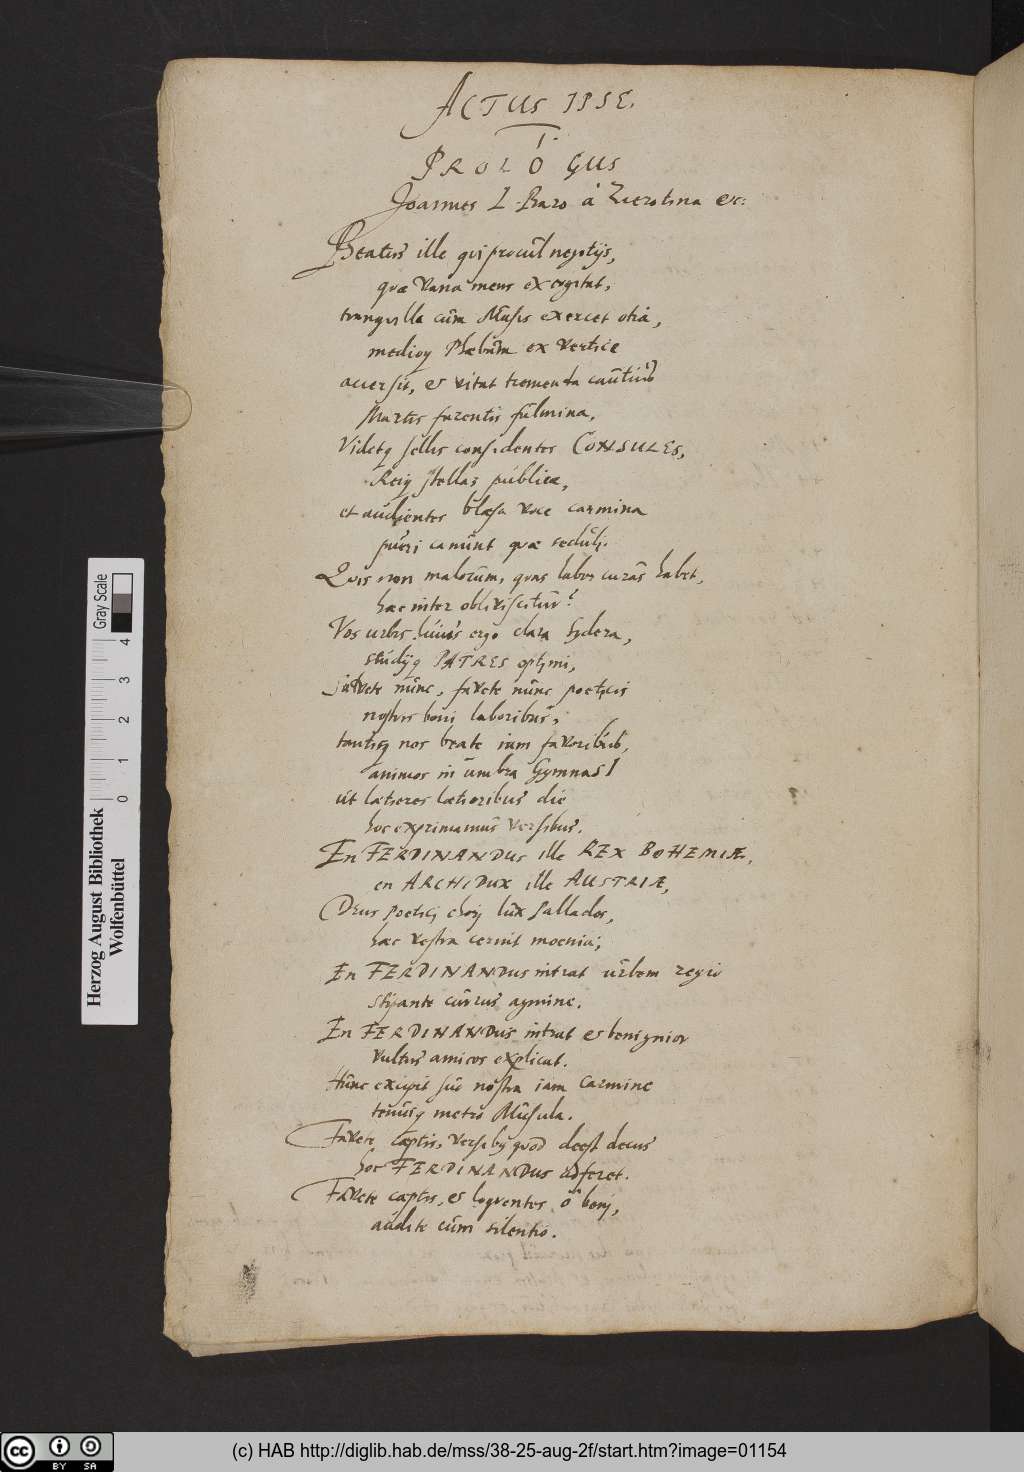 ACTUS IPSE.
I.
PROLOGUS
Joannes L. Baro à Zierotina &c:
Beatus ille qui procul negotijs,
quæ vana mens excogitat,
tranquilla cum Musis exercet otia,
medioq Phæbum ex vertice
accersit, et vitat tremenda cautius
Martis furentis fulmina,
Videtq sellis considentes CONSULES,
Reiq stellas publicæ,
et audientes blæsa voce carmina
pueri canunt quæ seduli.
Quis non malorum, quas labor curas habet,
hæc inter obliviscitur?
Vos urbis huius ergo clara sydera,
studijq PATRES optimi,
favete nunc, favete nunc poeticis
nostris boni laboribus,
tantisq nos beate iam favoribus,
animos in umbra GymnasI
ut lætiores lætioribus die
hoc exprimamus versibus.
En FERDINANDUS ille REX BOHEMIÆ,
en ARCHIDUX ille AUSTRIÆ,
Deus poetici chori lux Pallados,
hæc vestra cernit moenia;
En FERDINANDUS intrat urbem regio
stipante currus agmine.
En FERDINANDUS intrat et benignior
vultus amicos explicat.
Hunc excipit sub nostra iam carmine
tenuiq metro Musula.
Favete cæptis, versibq quod deest decus
hoc FERDINANDUS adferet.
Favete cæptis, et loquentes, ô boni,
audite cum silentio.
Herzog August Bibliothek
Wolfenbüttel
Gray Scale
0 1 2 3 4
(c) HAB http://diglib.hab.de/mss/38-25-aug-2f/start.htm?image=01154
cc BY SA